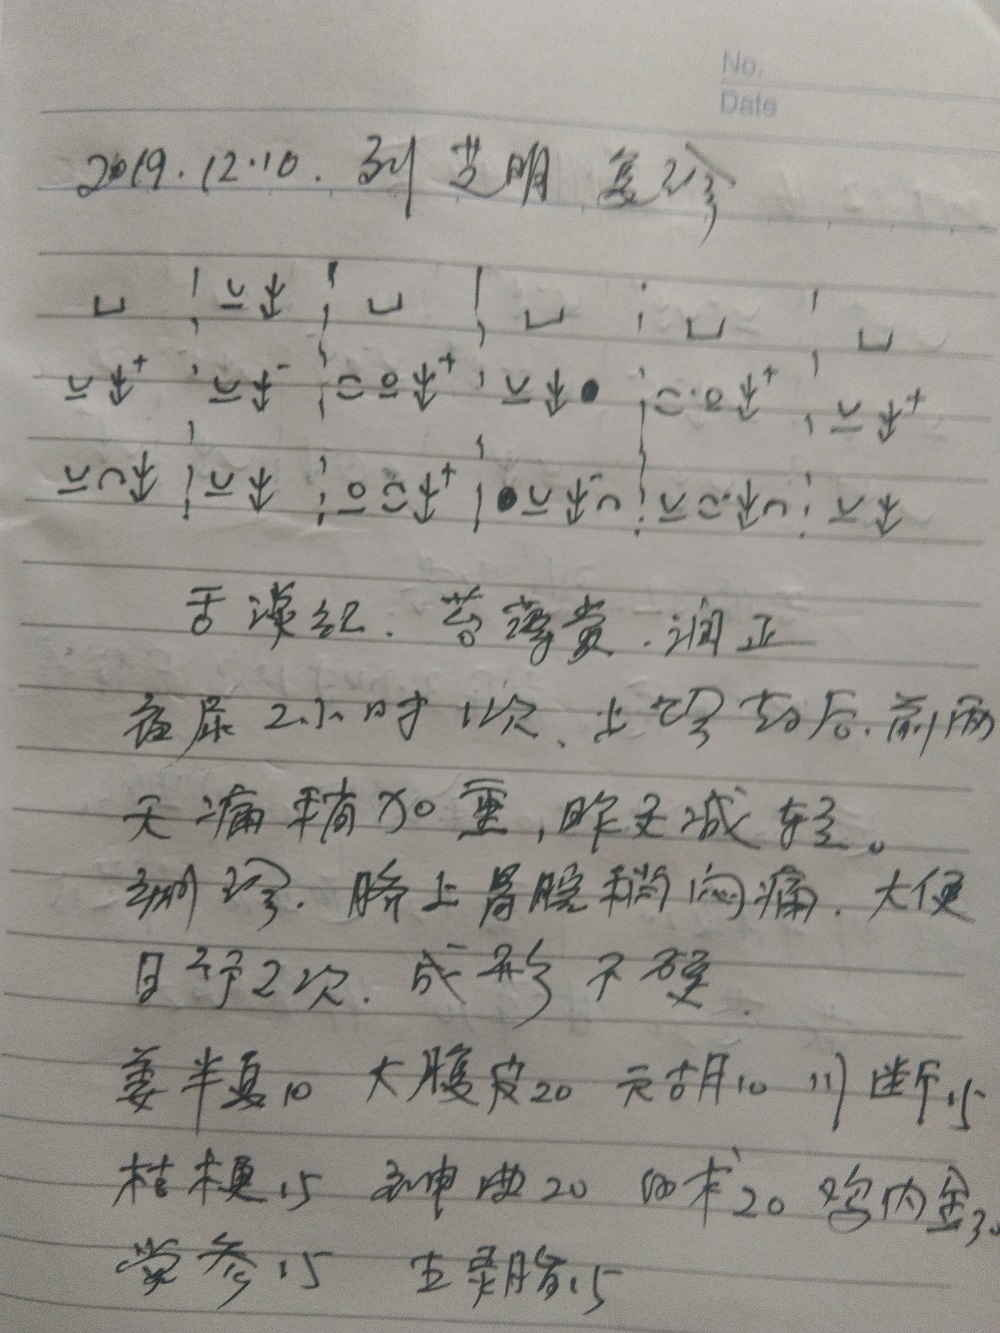 No.
Date
2019.12.10. 刘艾明 复诊
舌淡红. 苔薄黄. 润正
夜尿2小时1次、上诊药后.前两
天痛稍加重,昨天减轻。
脐上胃脘稍闷痛. 大便
日行2次. 成形不硬.
姜半夏10 大腹皮20 元胡10 川断15
桔梗15 神曲20 白术20 鸡内金30
党参15 五灵脂15